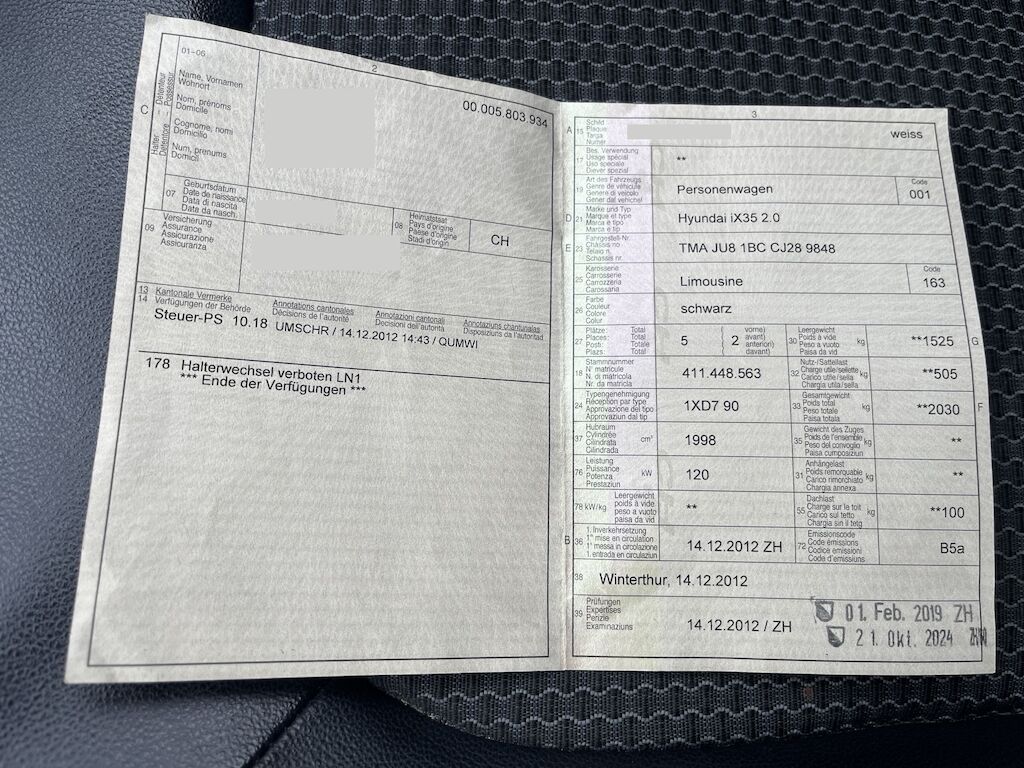 01-06
2
C
Détenteur
Possessur
Halter
Detentore
Name, Vornamen
Wohnort
Nom, prénoms
Domicile
Cognome, nomi
Domicilio
Num, prenums
Domicil
00.005.803.934
07
Geburtsdatum
Date de naissance
Data di nascita
Data da nasch.
08
Heimatstaat
Pays d'origine
Paese d'origine
Stadi d'origin
CH
09
Versicherung
Assurance
Assicurazione
Assicuranza
13 Kantonale Vermerke Annotations cantonales Annotazioni cantonali Annotaziuns chantunalas
14 Verfügungen der Behörde Décisions de l'autorité Decisioni dell'autorità Disposiziuns da l'autoritad
Steuer-PS 10.18 UMSCHR / 14.12.2012 14:43 / QUMWI
178 Halterwechsel verboten LN1
*** Ende der Verfügungen ***
3
A 15
Schild
Plaque
Targa
Numer
weiss
17
Bes. Verwendung
Usage spécial
Uso speciale
Diever spezial
**
19
Art des Fahrzeugs
Genre de véhicule
Genere di veicolo
Gener dal vehichel
Personenwagen
Code
001
D 21
Marke und Typ
Marque et type
Marca e tipo
Marca e tip
Hyundai iX35 2.0
E 23
Fahrgestell-Nr.
Châssis no
Telaio n.
Schassis nr.
TMA JU8 1BC CJ28 9848
25
Karosserie
Carrosserie
Carrozzeria
Carossaria
Limousine
Code
163
26
Farbe
Couleur
Colore
Colur
schwarz
27
Plätze: Total
Places: Total
Posti: Totale
Plazs: Total
5
( 2
vorne)
avant)
anteriori)
davant)
30
Leergewicht
Poids à vide
Peso a vuoto
Paisa da vid
kg
**1525
G
18
Stammnummer
N° matricule
N. di matricola
Nr. da matricla
411.448.563
32
Nutz-/Sattellast
Charge utile/sellette
Carico utile/sella
Chargia utila/sella
kg
**505
24
Typengenehmigung
Réception par type
Approvazione del tipo
Approvaziun dal tip
1XD7 90
33
Gesamtgewicht
Poids total
Peso totale
Paisa totala
kg
**2030
F
37
Hubraum
Cylindrée
Cilindrata
Cilindrada
cm³
1998
35
Gewicht des Zuges
Poids de l'ensemble
Peso del convoglio
Paisa cumposiziun
kg
**
76
Leistung
Puissance
Potenza
Prestaziun
kW
120
31
Anhängelast
Poids remorquable
Carico rimorchiato
Chargia annexa
kg
**
78 kW/kg
Leergewicht
poids à vide
peso a vuoto
paisa da vid
**
55
Dachlast
Charge sur le toit
Carico sul tetto
Chargia sin il tetg
kg
**100
B 36
1. Inverkehrsetzung
1re mise en circulation
1a messa in circolazione
1. entrada en circulaziun
14.12.2012 ZH
72
Emissionscode
Code émissions
Codice emissioni
Code d'emissiuns
B5a
38
Winterthur, 14.12.2012
39
Prüfungen
Expertises
Perizie
Examinaziuns
14.12.2012 / ZH
01. Feb. 2019 ZH
21. Okt. 2024